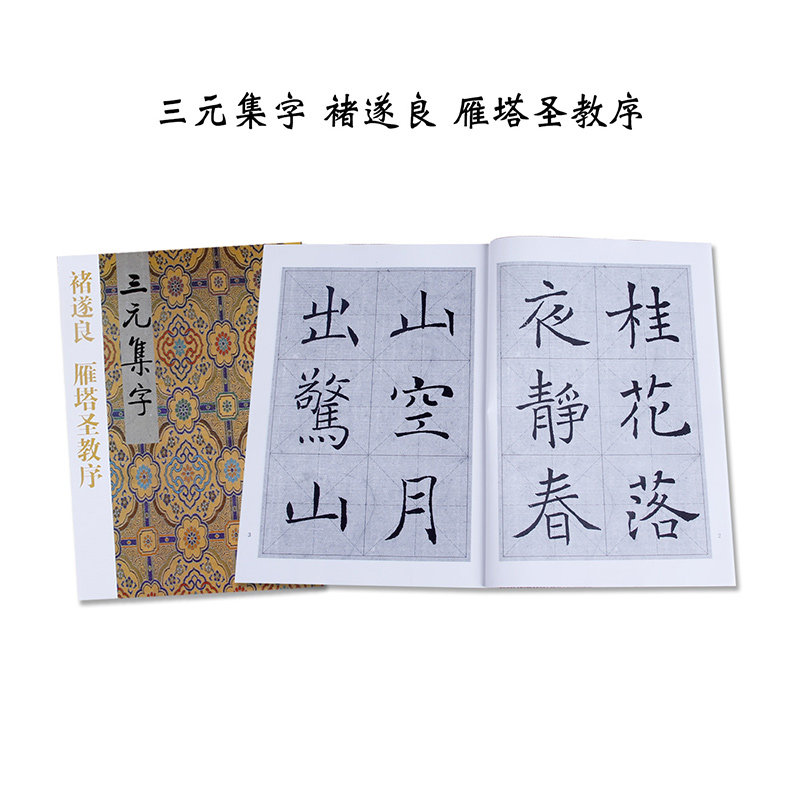 三元集字 褚遂良 雁塔圣教序
三元集字
褚遂良 雁塔圣教序
桂花落
夜靜春
2
山空月
出驚山
3